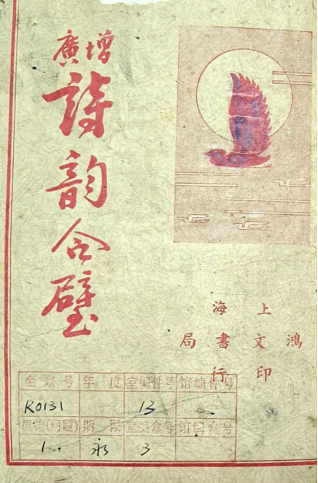 增廣
詩韵合璧
上海
鴻文書局
印行
全宗号 年度 室编件号 馆编件号
R0131 13
机构(问题) 期限
1. 永 3